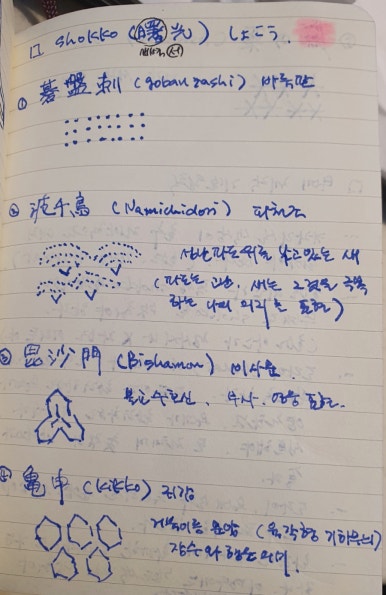 □ shokko (曙光) しょこう.
새벽 서
① 碁盤刺 (goban zashi) 바둑판
② 波千鳥 (Namichidori) 파천조
사나운 파도 위를 날고 있는 새
(파도는 고난, 새는 그것을 극복
하는 나의 의지를 표현)
③ 毘沙門 (Bishamon) 비사문
불교 수호신, 무사, 영웅 표현.
④ 亀甲 (kikko) 귀갑
거북이등 문양 (육각형 기하무늬)
장수와 행운 의미.